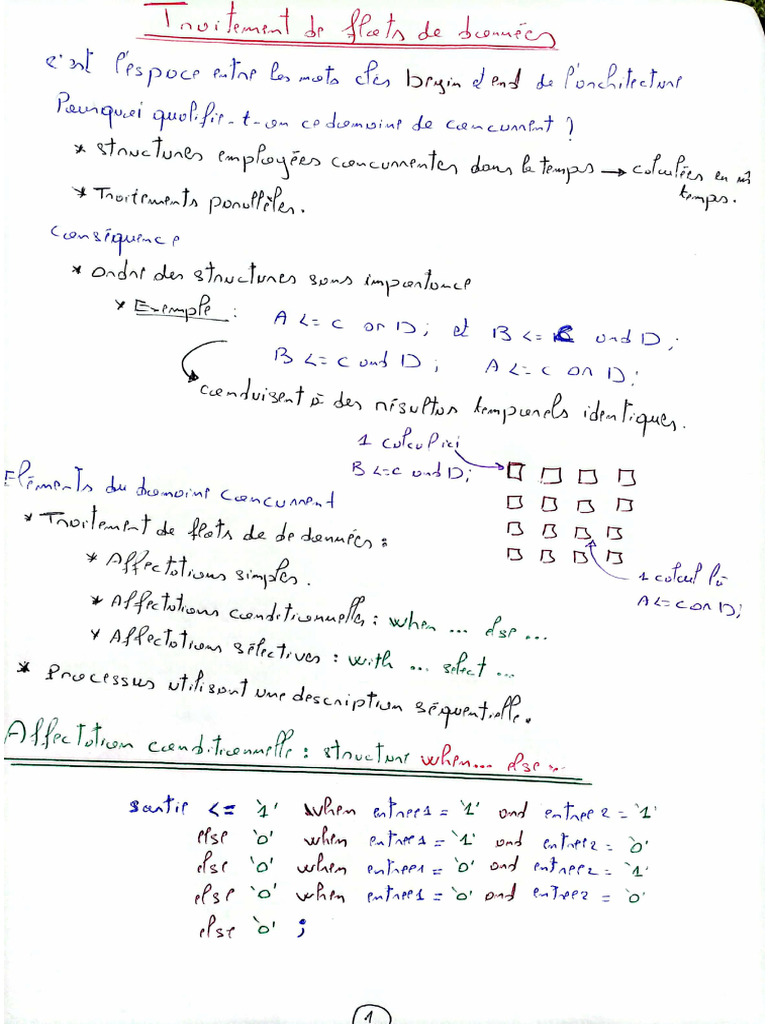 Traitement de flots de données
c'est l'espace entre les mots clés begin et end de l'architecture
Pourquoi qualifie-t-on ce domaine de concurrent ?
* structures employées concurrentes dans le temps → calculées en m̂
temps.
* Traitements parallèles.
Conséquence
* ordre des structures sans importance
* Exemple : A <= C or D ; et B <= C and D ;
B <= C and D ; A <= C or D ;
conduisent à des résultas temporels identiques.
1 calcul ici
B <= C and D ;
Eléments du domaine concurrent
* Traitement de flots de de données :
* Affectations simples.
1 calcul là
A <= C or D ;
* Affectations conditionnelles : when ... else ...
* Affectations sélectives : with ... select ...
* Processus utilisant une description séquentielle.
Affectation conditionnelle : structure when... else ...
sortie <= '1' when entree1 = '1' and entree2 = '1'
else '0' when entree1 = '1' and entree2 = '0'
else '0' when entree1 = '0' and entree2 = '1'
else '0' when entree1 = '0' and entree2 = '0'
else '0' ;
1